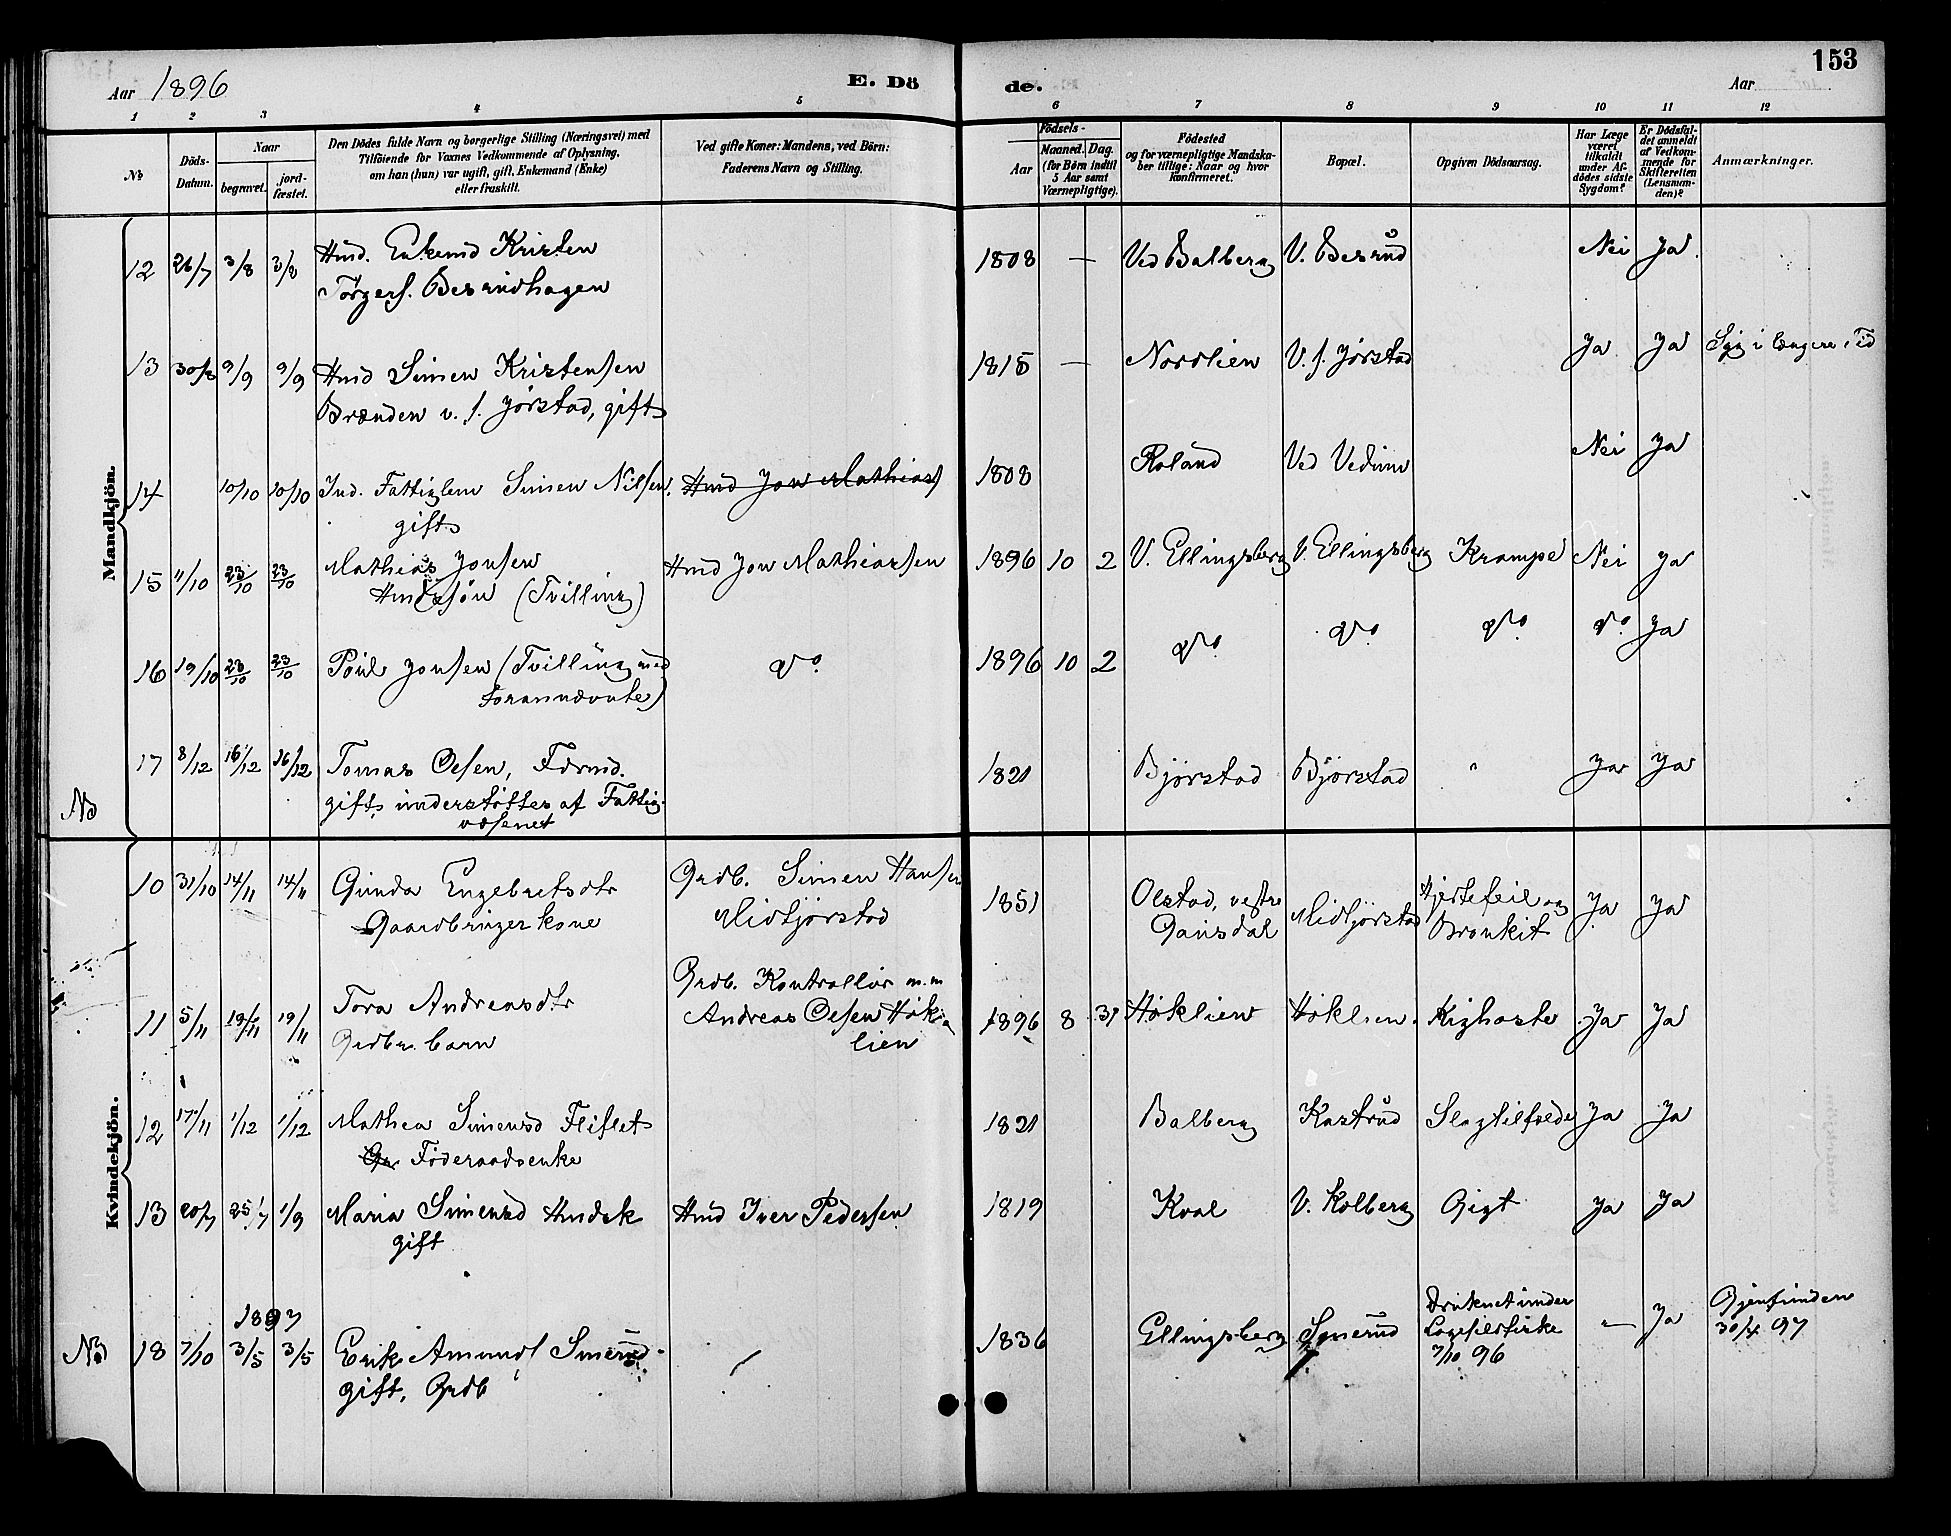 153
Aar 1896
E. Dö
de.
Aar
1 2 3 4 5 6 7 8 9 10 11 12
No
Döds-
Datum.
Naar
begravet.
jord-
fæstet.
Den Dödes fulde Navn og borgerlige Stilling (Næringsvei) med
Tilföiende for Voxnes Vedkommende af Oplysning,
om han (hun) var ugift, gift, Enkemand (Enke)
eller fraskilt.
Ved gifte Koner: Mandens, ved Børn:
Faderens Navn og Stilling.
Födsels-
Aar
Maaned. Dag.
(for Börn indtil
5 Aar samt
Værnepligtige).
Födested
og for værnepligtige Mandska-
ber tillige: Naar og hvor
konfirmeret.
Bopæl.
Opgiven Dödsaarsag.
Har Læge
været
tilkaldt
under Af-
dödes sidste
Sygdom?
Er Dödsfal-
det anmeldt
af Vedkom-
mende for
Skifteretten
(Lensman-
den)?
Anmærkninger.
Mandkjön.
12 26/7 3/8 3/8 Hmd. Enkemd Kristen
Torgers. Besrudhagen
1808 — Ved Balberg V. Besrud Nei Ja
13 30/8 9/9 9/9 Hmd Simen Kristensen
Brænden v. s. Jørstad, gift
1815 — Nordlien V. s. Jørstad Ja Ja Syg i længere Tid
14 10/10 10/10 Ind. Fattiglem Simen Nilsen. Hmd Jon Mathias
gift
1808 Roland Ved Vedum Nei Ja
15 11/10 23/10 23/10 Mathias Jonsen
Hmdssøn (Tvilling)
Hmd Jon Mathiassen
1896 10 2 V. Ellingsberg V. Ellingsberg Krampe Nei Ja
16 19/10 23/10 23/10 Poul Jonsen (Tvilling med
forannævnte)
do 1896 10 2 do do do do Ja
17 8/12 16/12 16/12 Tomas Olsen, Fdrmd.
gift, understøttes af Fattig-
væsenet
1821 Bjørstad Bjørstad " Ja Ja
No
Kvindekjön.
10 31/10 14/11 14/11 Gunda Engebretsdtr
Gaardbrugerkone
Grdb. Simen Hansen
Midtjørstad
1851 Olstad, vestre
Gausdal
Midtjørstad
Hjertefeil og
Bronkit
Ja Ja
11 5/11 19/11 19/11 Tora Andreasdtr
Grdbr. barn
Grdb. Kontrollør m.m
Andreas Olsen Høk-
lien
1896 8 31 Høklien Høklien. Kighoste Ja Ja
12 17/11 1/12 1/12 Mathea Simensd Fliflet
Gr Føderaadsenke
1821 Balberg Kastrud Slagtilfælde Ja Ja
13 20/7 25/7 1/9 Maria Simensd Hmdsk
gift
Hmd Iver Pedersen
1819 Kval V. Kolberg Gigt Ja Ja
1897
No 18 7/10 3/5 3/5 Erik Amunds Smerud
gift, Grdb
1836 Ellingsberg Smerud
Druknet under
7/10 96
— Ja
Gjenfunden
30/4 97